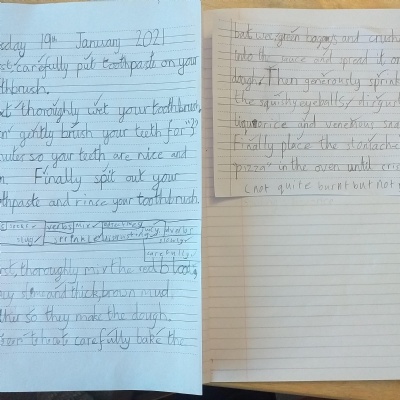 sday 19th January 2021
carefully put toothpaste on your
thbrush.
xt thoroughly wet your toothbrush,
gently brush your teeth for "3"
nutes so your teeth are nice and
n. Finally spit out your
thpaste and rince your toothbrush.
verbs mix
slug sprinkle adverbs
slowly
carefully
st, thoroughly mix the red blood,
slime and thick, brown mud,
ther so they make the dough.
carefully bake the
bat wee, green bogeys and crush
into the sauce and spread it on
dough. Then generously sprin
the squishy eyeballs, disgust
liquorice and venemous sna
Finally place the stomachache
pizza" in the oven until cris
(not quite burnt but not